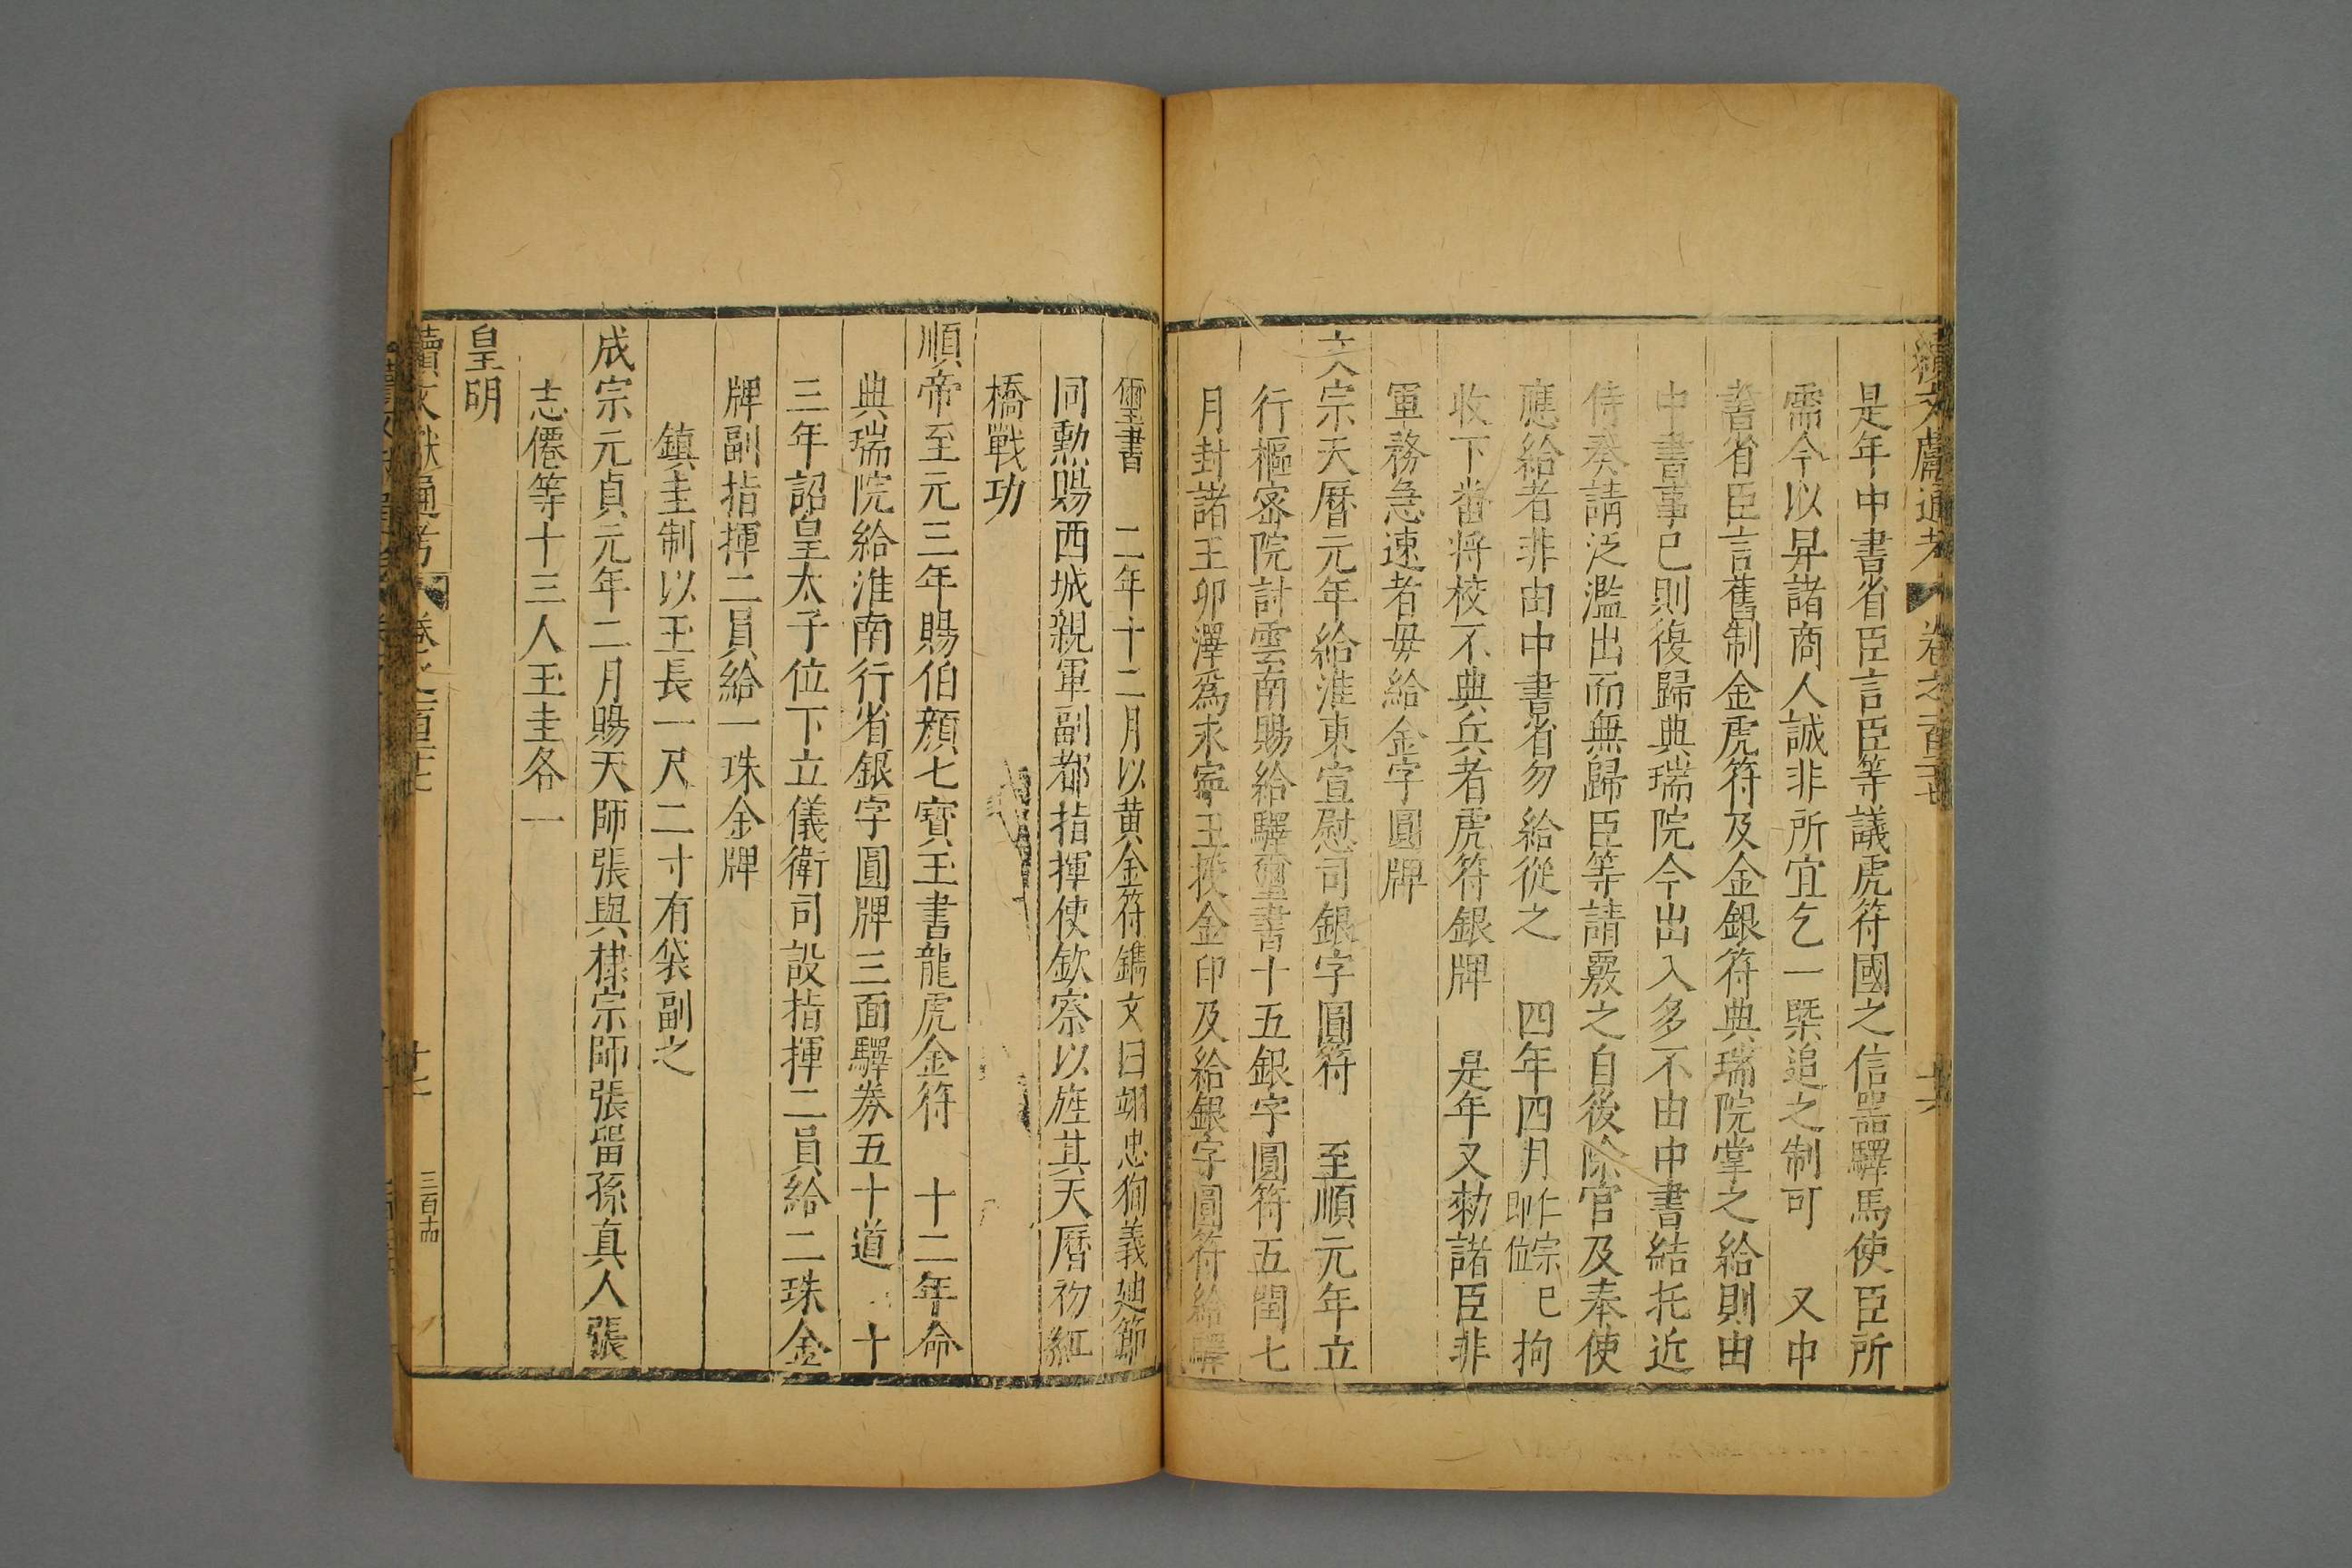 續文獻通考 卷之一百二十七 廿六
是年中書省臣言臣等議虎符國之信器驛馬使臣所
需今以畀諸商人誠非所宜乞一槩追之制可 又中
書省臣言舊制金虎符及金銀符典瑞院掌之給則由
中書事已則復歸典瑞院今出入多不由中書結托近
侍奏請泛濫出而無歸臣等請覈之自後除官及奉使
應給者非由中書省勿給從之 四年四月仁宗即位已拘
收下番將校不典兵者虎符銀牌 是年又勑諸臣非
軍務急速者毋給金字圓牌
文宗天曆元年給淮東宣慰司銀字圓符 至順元年立
行樞密院討雲南賜給驛璽書十五銀字圓符五閏七
月封諸王卯澤爲永寧王授金印及給銀字圓符給驛
璽書 二年十二月以黃金符鐫文曰翊忠狥義廸節
同勲賜西域親軍副都指揮使欽察以旌其天曆初紅
橋戰功
順帝至元三年賜伯顏七寶玉書龍虎金符 十二年命
典瑞院給淮南行省銀字圓牌三面驛券五十道 十
三年詔皇太子位下立儀衛司設指揮二員給二珠金
牌副指揮二員給一珠金牌
鎮圭制以玉長一尺二寸有袋副之
成宗元貞元年二月賜天師張與棣宗師張留孫真人張
志僊等十三人玉圭各一
皇明
續文獻通考 卷之一百二十七 廿七 三百十四